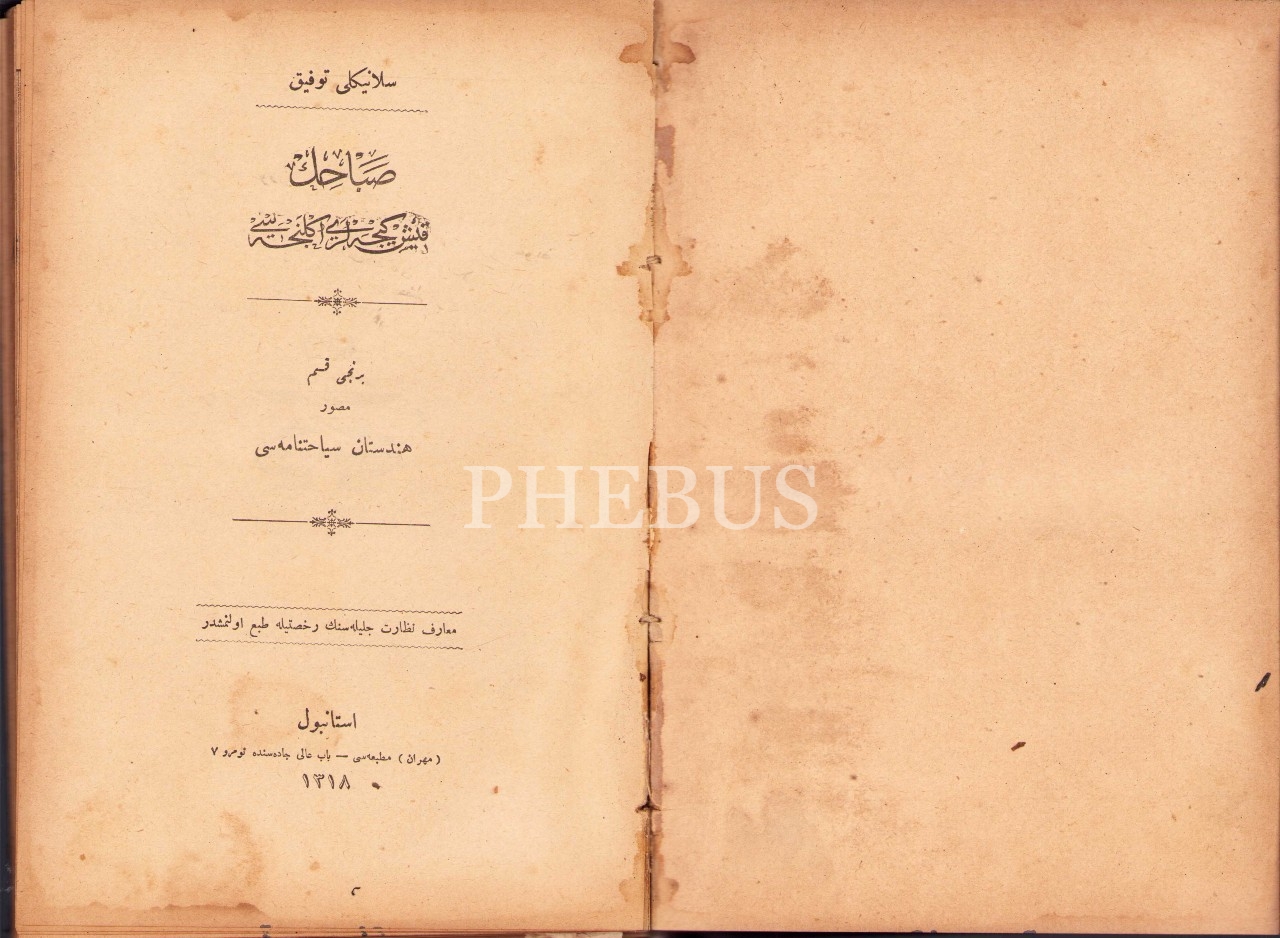 سلانيكلی توفيق
صباحك
قيش كيجه لری اكلنجه سی
برنجی قسم
مصور
هندستان سياحتنامه سی
معارف نظارت جليله سنك رخصتيله طبع اولنمشدر
استانبول
( مهران ) مطبعه سی — باب عالی جاده سنده نومرو ٧
١٣١٨
PHEBUS